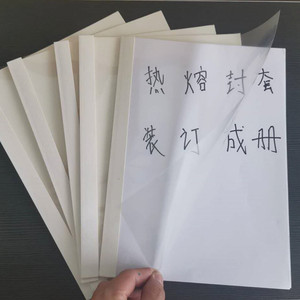 热熔封套
装订成册